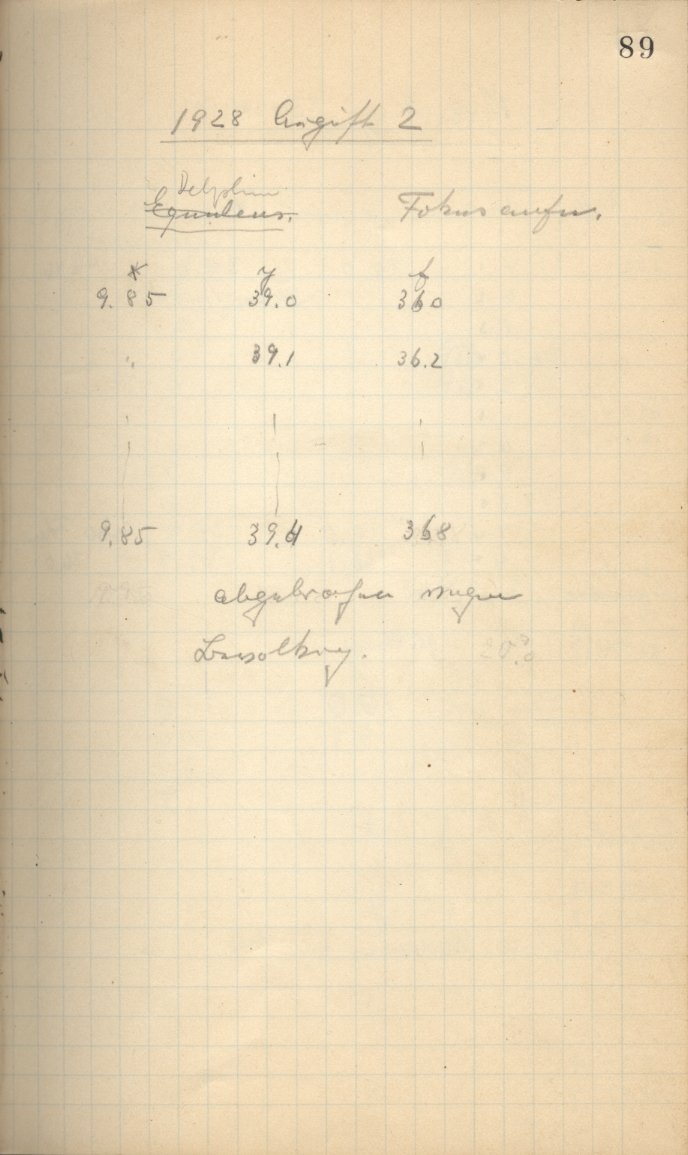 89
1928 August 2
Delphin
Equuleus. Fokusaufn.
* y f
9.85 39.0 36.0
" 39.1 36.2
9.85 39.4 36.8
abgebrochen wegen
Bewölkung.